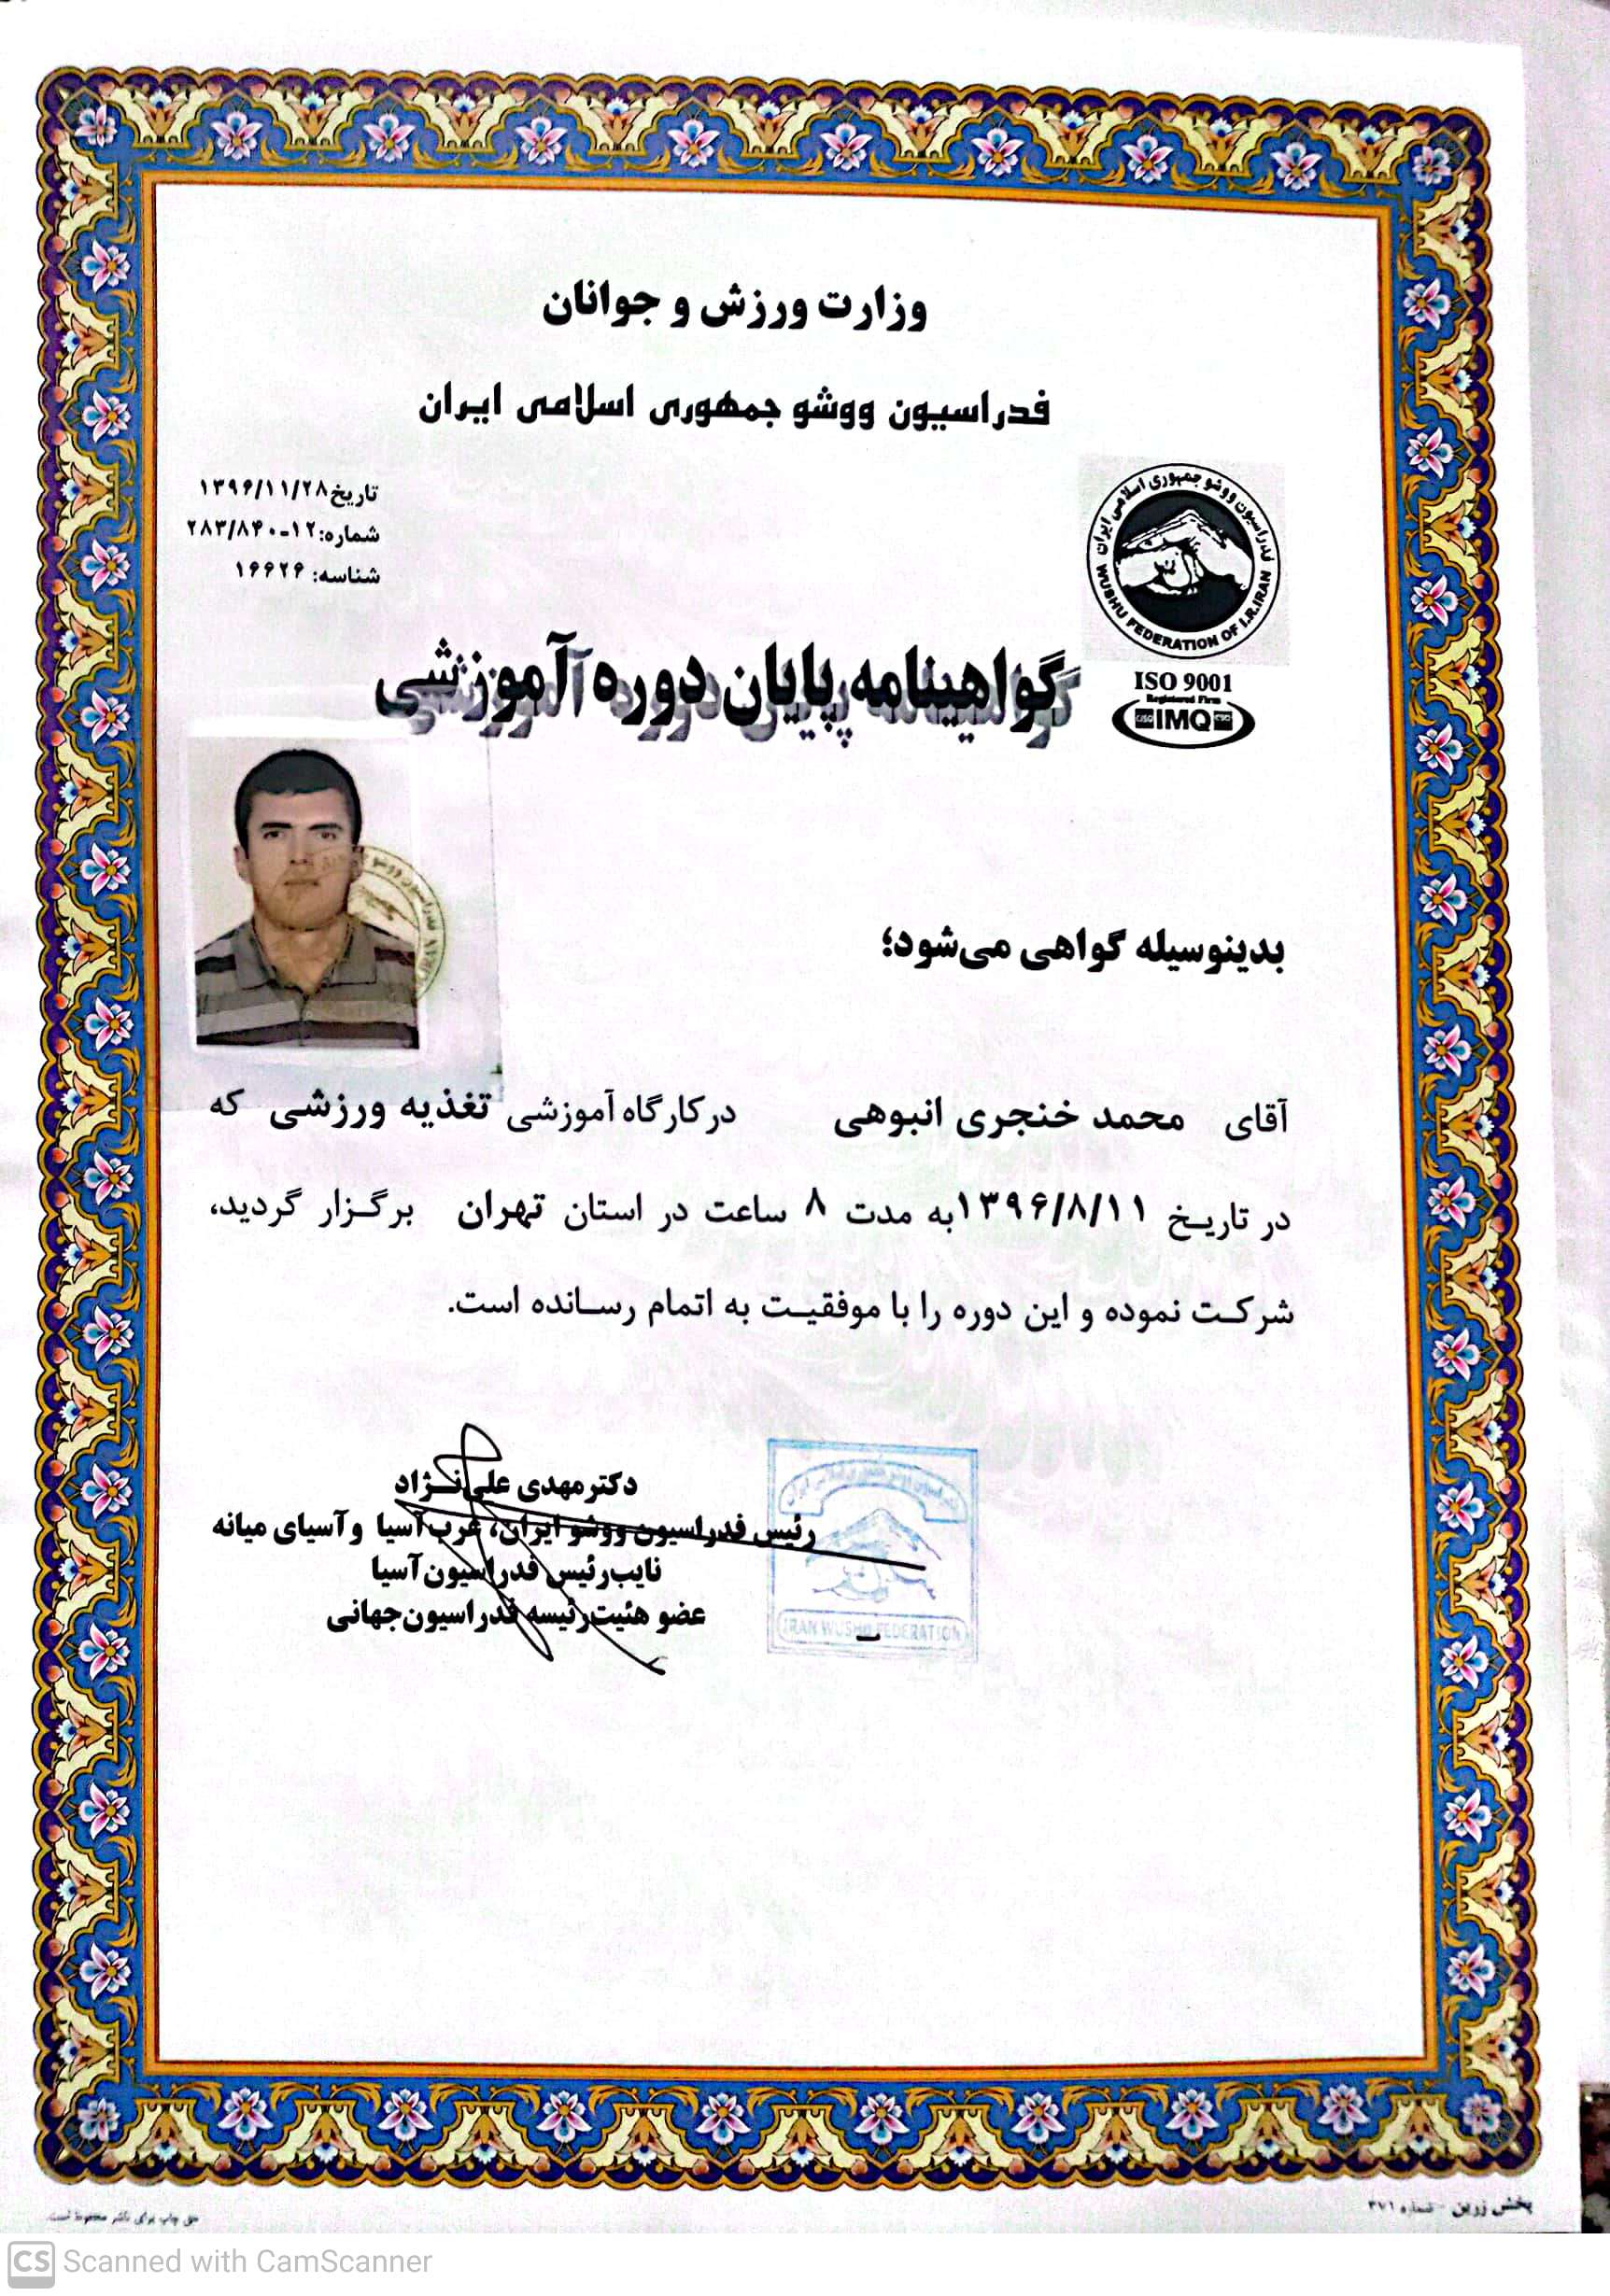 وزارت ورزش و جوانان
فدراسیون ووشو جمهوری اسلامی ایران
تاریخ۱۳۹۶/۱۱/۲۸
شماره:۱۲-۲۸۳/۸۴۰
شناسه: ۱۶۶۲۶
فدراسیون ووشو جمهوری اسلامی ایران
WUSHU FEDERATION OF I.R.IRAN
ISO 9001
Registered Firm
CISQ IMQ CSQ
گواهینامه پایان دوره آموزشی
بدینوسیله گواهی می‌شود؛
آقای محمد خنجری انبوهی درکارگاه آموزشی تغذیه ورزشی که
در تاریخ ۱۳۹۶/۸/۱۱به مدت ۸ ساعت در استان تهران برگزار گردید،
شرکت نموده و این دوره را با موفقیت به اتمام رسانده است.
دکترمهدی علی‌نژاد
رئیس فدراسیون ووشو ایران، غرب‌آسیا و آسیای میانه
نایب‌رئیس فدراسیون آسیا
عضو هئیت‌رئیسه فدراسیون‌جهانی
IRAN WUSHU FEDERATION
پخش زرین - شماره ۳۷۱
حق چاپ برای ناشر محفوظ است.
CS Scanned with CamScanner